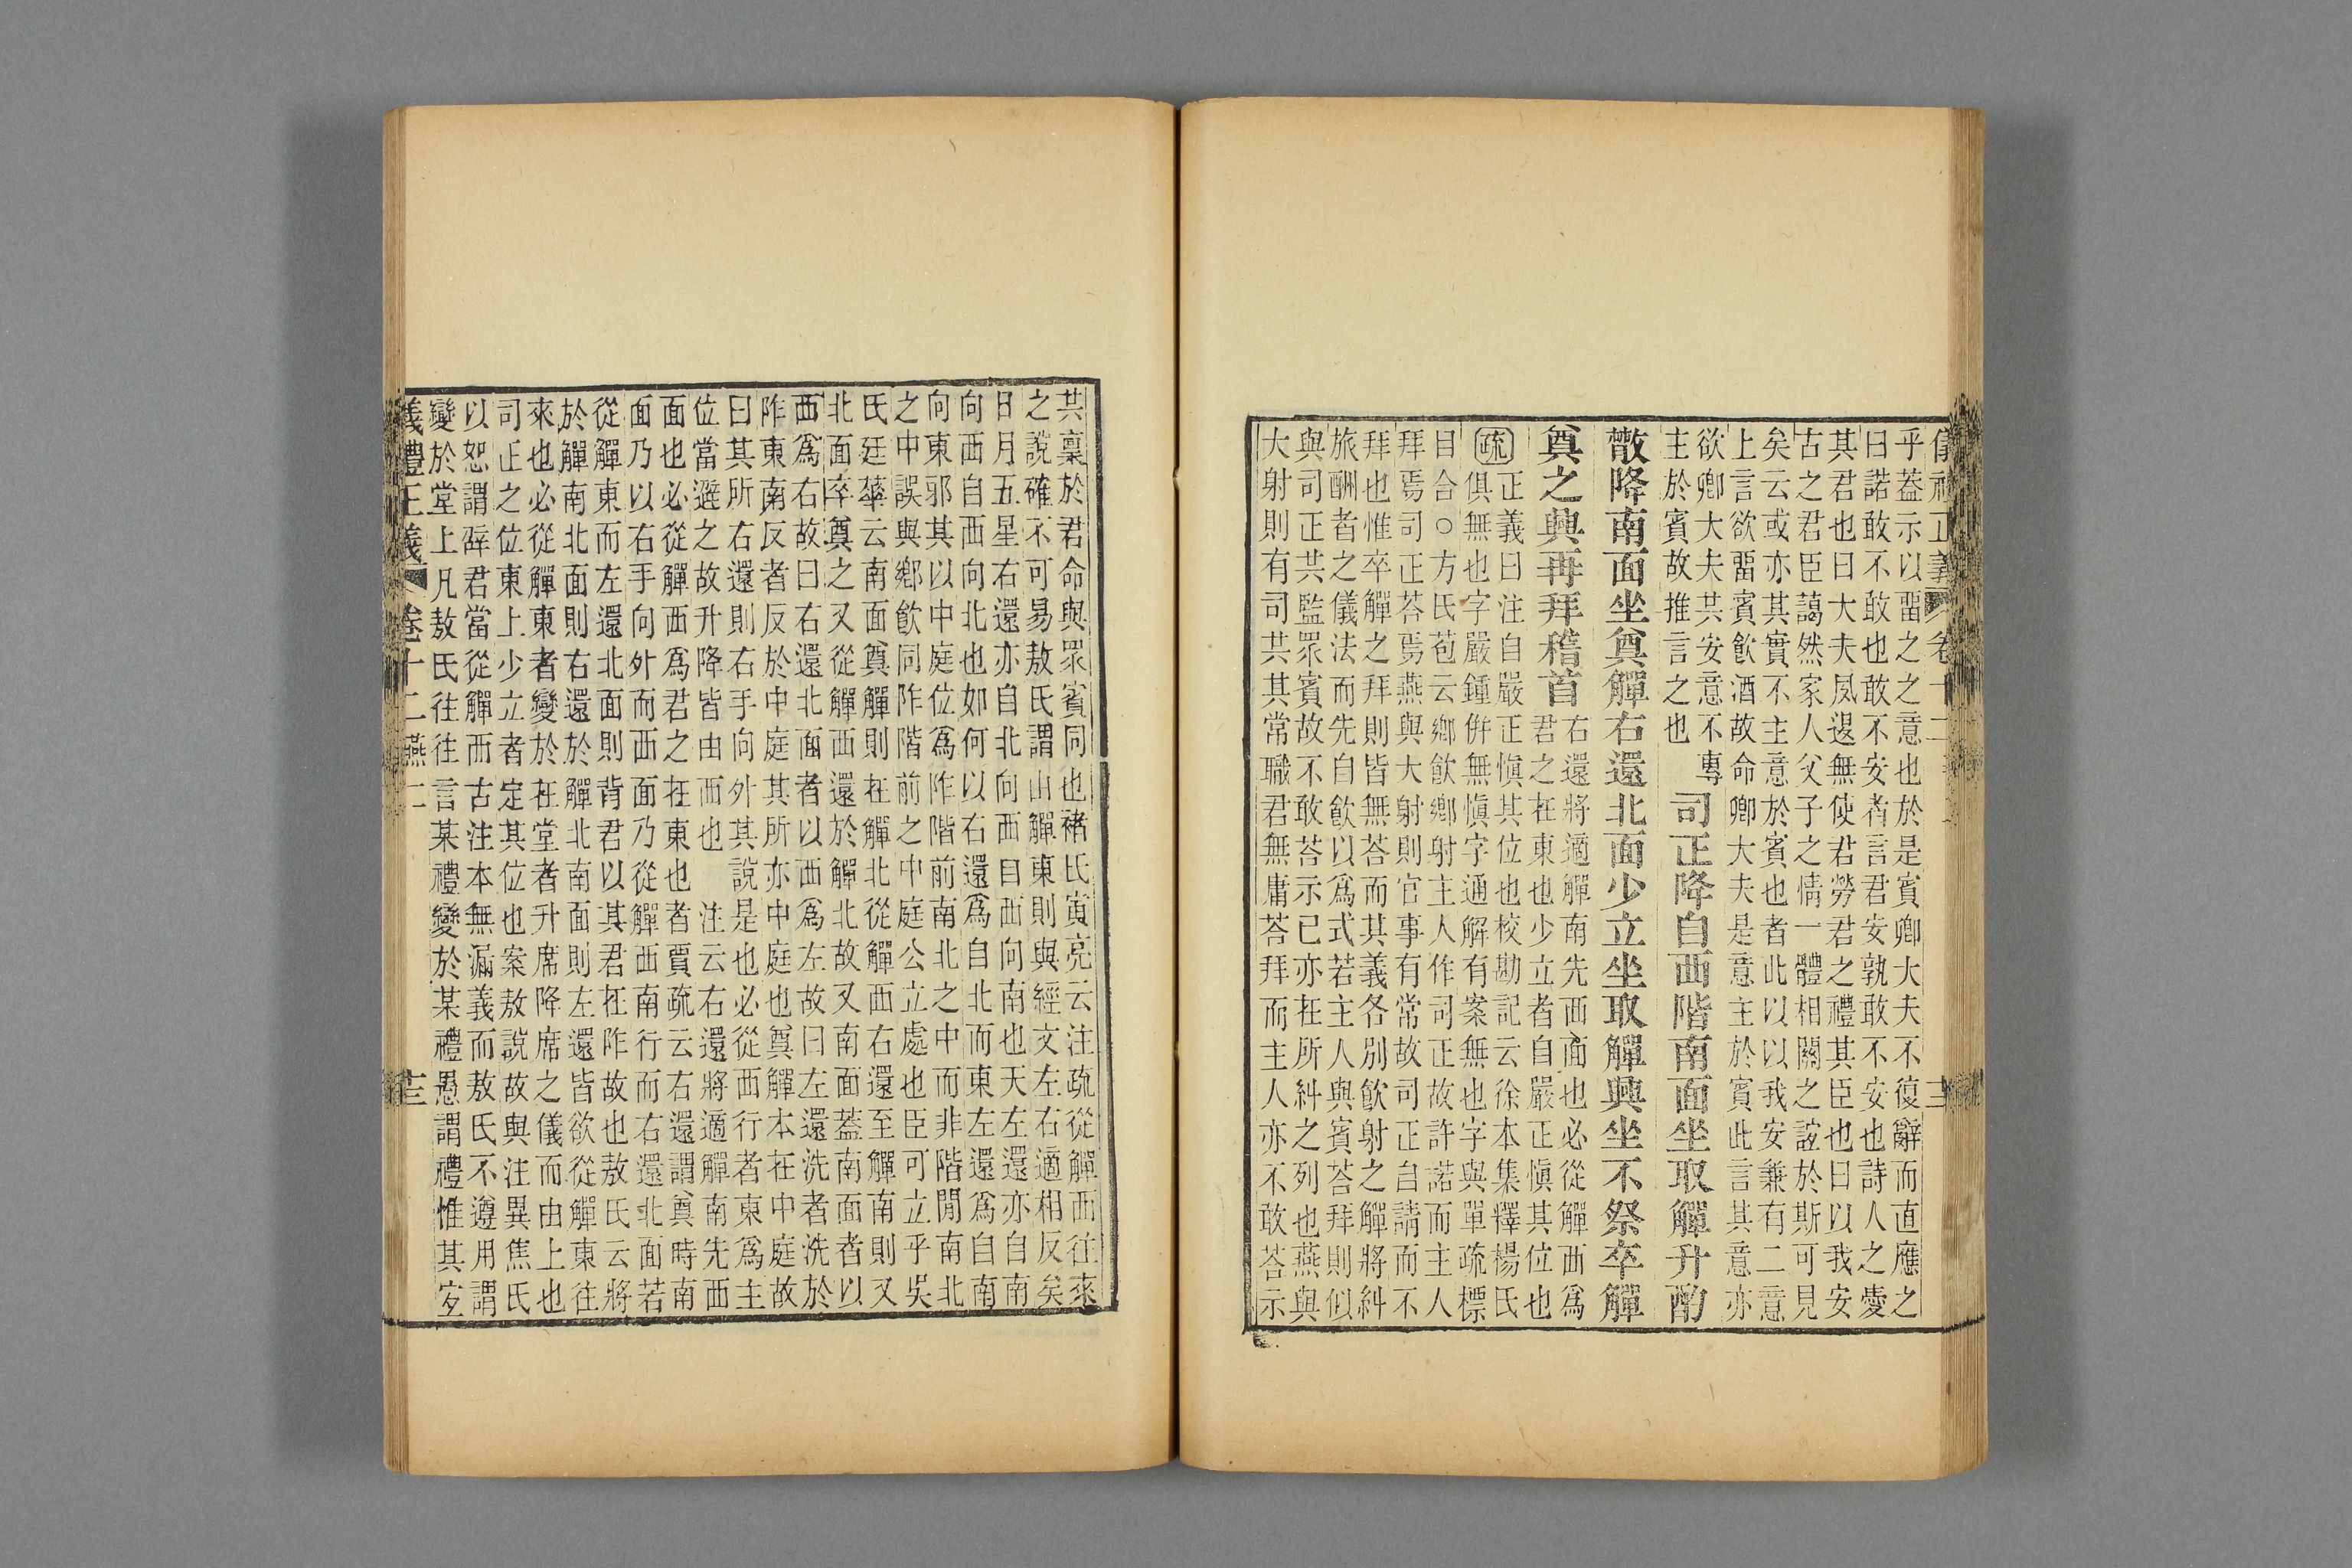 儀禮正義 卷十二
乎蓋示以畱之之意也於是賓卿大夫不復辭而直應之
曰諾敢不敢也敢不安者言君安孰敢不安也詩人之愛
其君也曰大夫夙退無使君勞君之禮其臣也曰以我安
古之君臣藹然家人父子之情一體相關之誼於斯可見
矣云或亦其實不主意於賓也者此以以我安兼有二意
上言欲畱賓飮酒故命卿大夫是意主於賓此言其意亦
欲卿大夫共安意不專
主於賓故推言之也
司正降自西階南面坐取觶升酌
散降南面坐奠觶右還北面少立坐取觶興坐不祭卒觶
奠之興再拜稽首
右還將適觶南先西面也必從觶西爲
君之在東也少立者自嚴正愼其位也
疏
正義曰注自嚴正愼其位也校勘記云徐本集釋楊氏
俱無也字嚴鍾倂無愼字通解有案無也字與單疏標
目合○方氏苞云鄉飮鄉射主人作司正故許諾而主人
拜焉司正荅焉燕與大射則官事有常故司正自請而不
拜也惟卒觶之拜則皆無荅而其義各別飮射之觶將糾
旅酬者之儀法而先自飮以爲式若主人與賓荅拜則似
與司正共監眾賓故不敢荅示已亦在所糾之列也燕與
大射則有司共其常職君無庸荅拜而主人亦不敢荅示
共稟於君命與眾賓同也褚氏寅亮云注疏從觶西往來
之說確不可易敖氏謂由觶東則與經文左右適相反矣
日月五星右還亦自北向西自西向南也天左還亦自南
向西自西向北也如何以右還爲自北而東左還爲自南
向東邪其以中庭位爲阼階前南北之中而非階閒南北
之中誤與鄉飮同阼階前之中庭公立處也臣可立乎吳
氏廷華云南面奠觶則在觶北從觶西右還至觶南則又
北面卒奠之又從觶西還於觶北故又南面蓋南面者以
西爲右故曰右還北面者以西爲左故曰左還洗者洗於
阼東南反者反於中庭其所亦中庭也奠觶本在中庭故
曰其所右還則右手向外其說是也必從西行者東爲主
位當避之故升降皆由西也 注云右還將適觶南先西
面也必從觶西爲君之在東也者賈疏云右還謂奠時南
面乃以右手向外而西面乃從觶西南行而右還北面若
從觶東而左還北面則背君以其君在阼故也敖氏云將
於觶南北面則右還於觶北南面則左還皆欲從觶東往
來也必從觶東者變於在堂者升席降席之儀而由上也
司正之位東上少立者定其位也案敖說故與注異焦氏
以恕謂辟君當從觶西古注本無漏義而敖氏不遵用謂
變於堂上凡敖氏往往言某禮變於某禮愚謂禮惟其宜
義禮正義 卷十二 燕二 十三